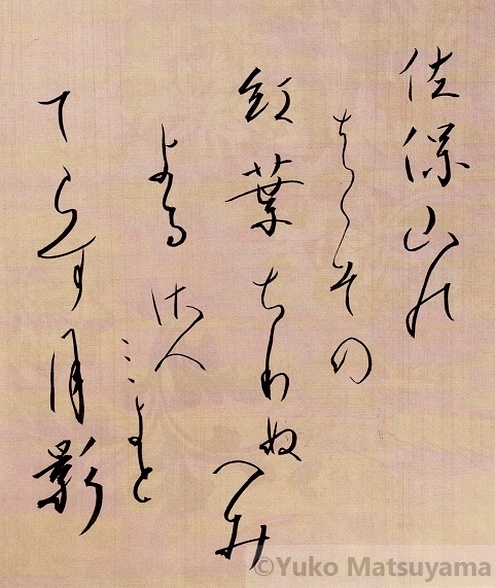 佐保山の
はゝその
紅葉ちりぬ
へみ
よるさへ
みよと
てらす月影
©Yuko Matsuyama